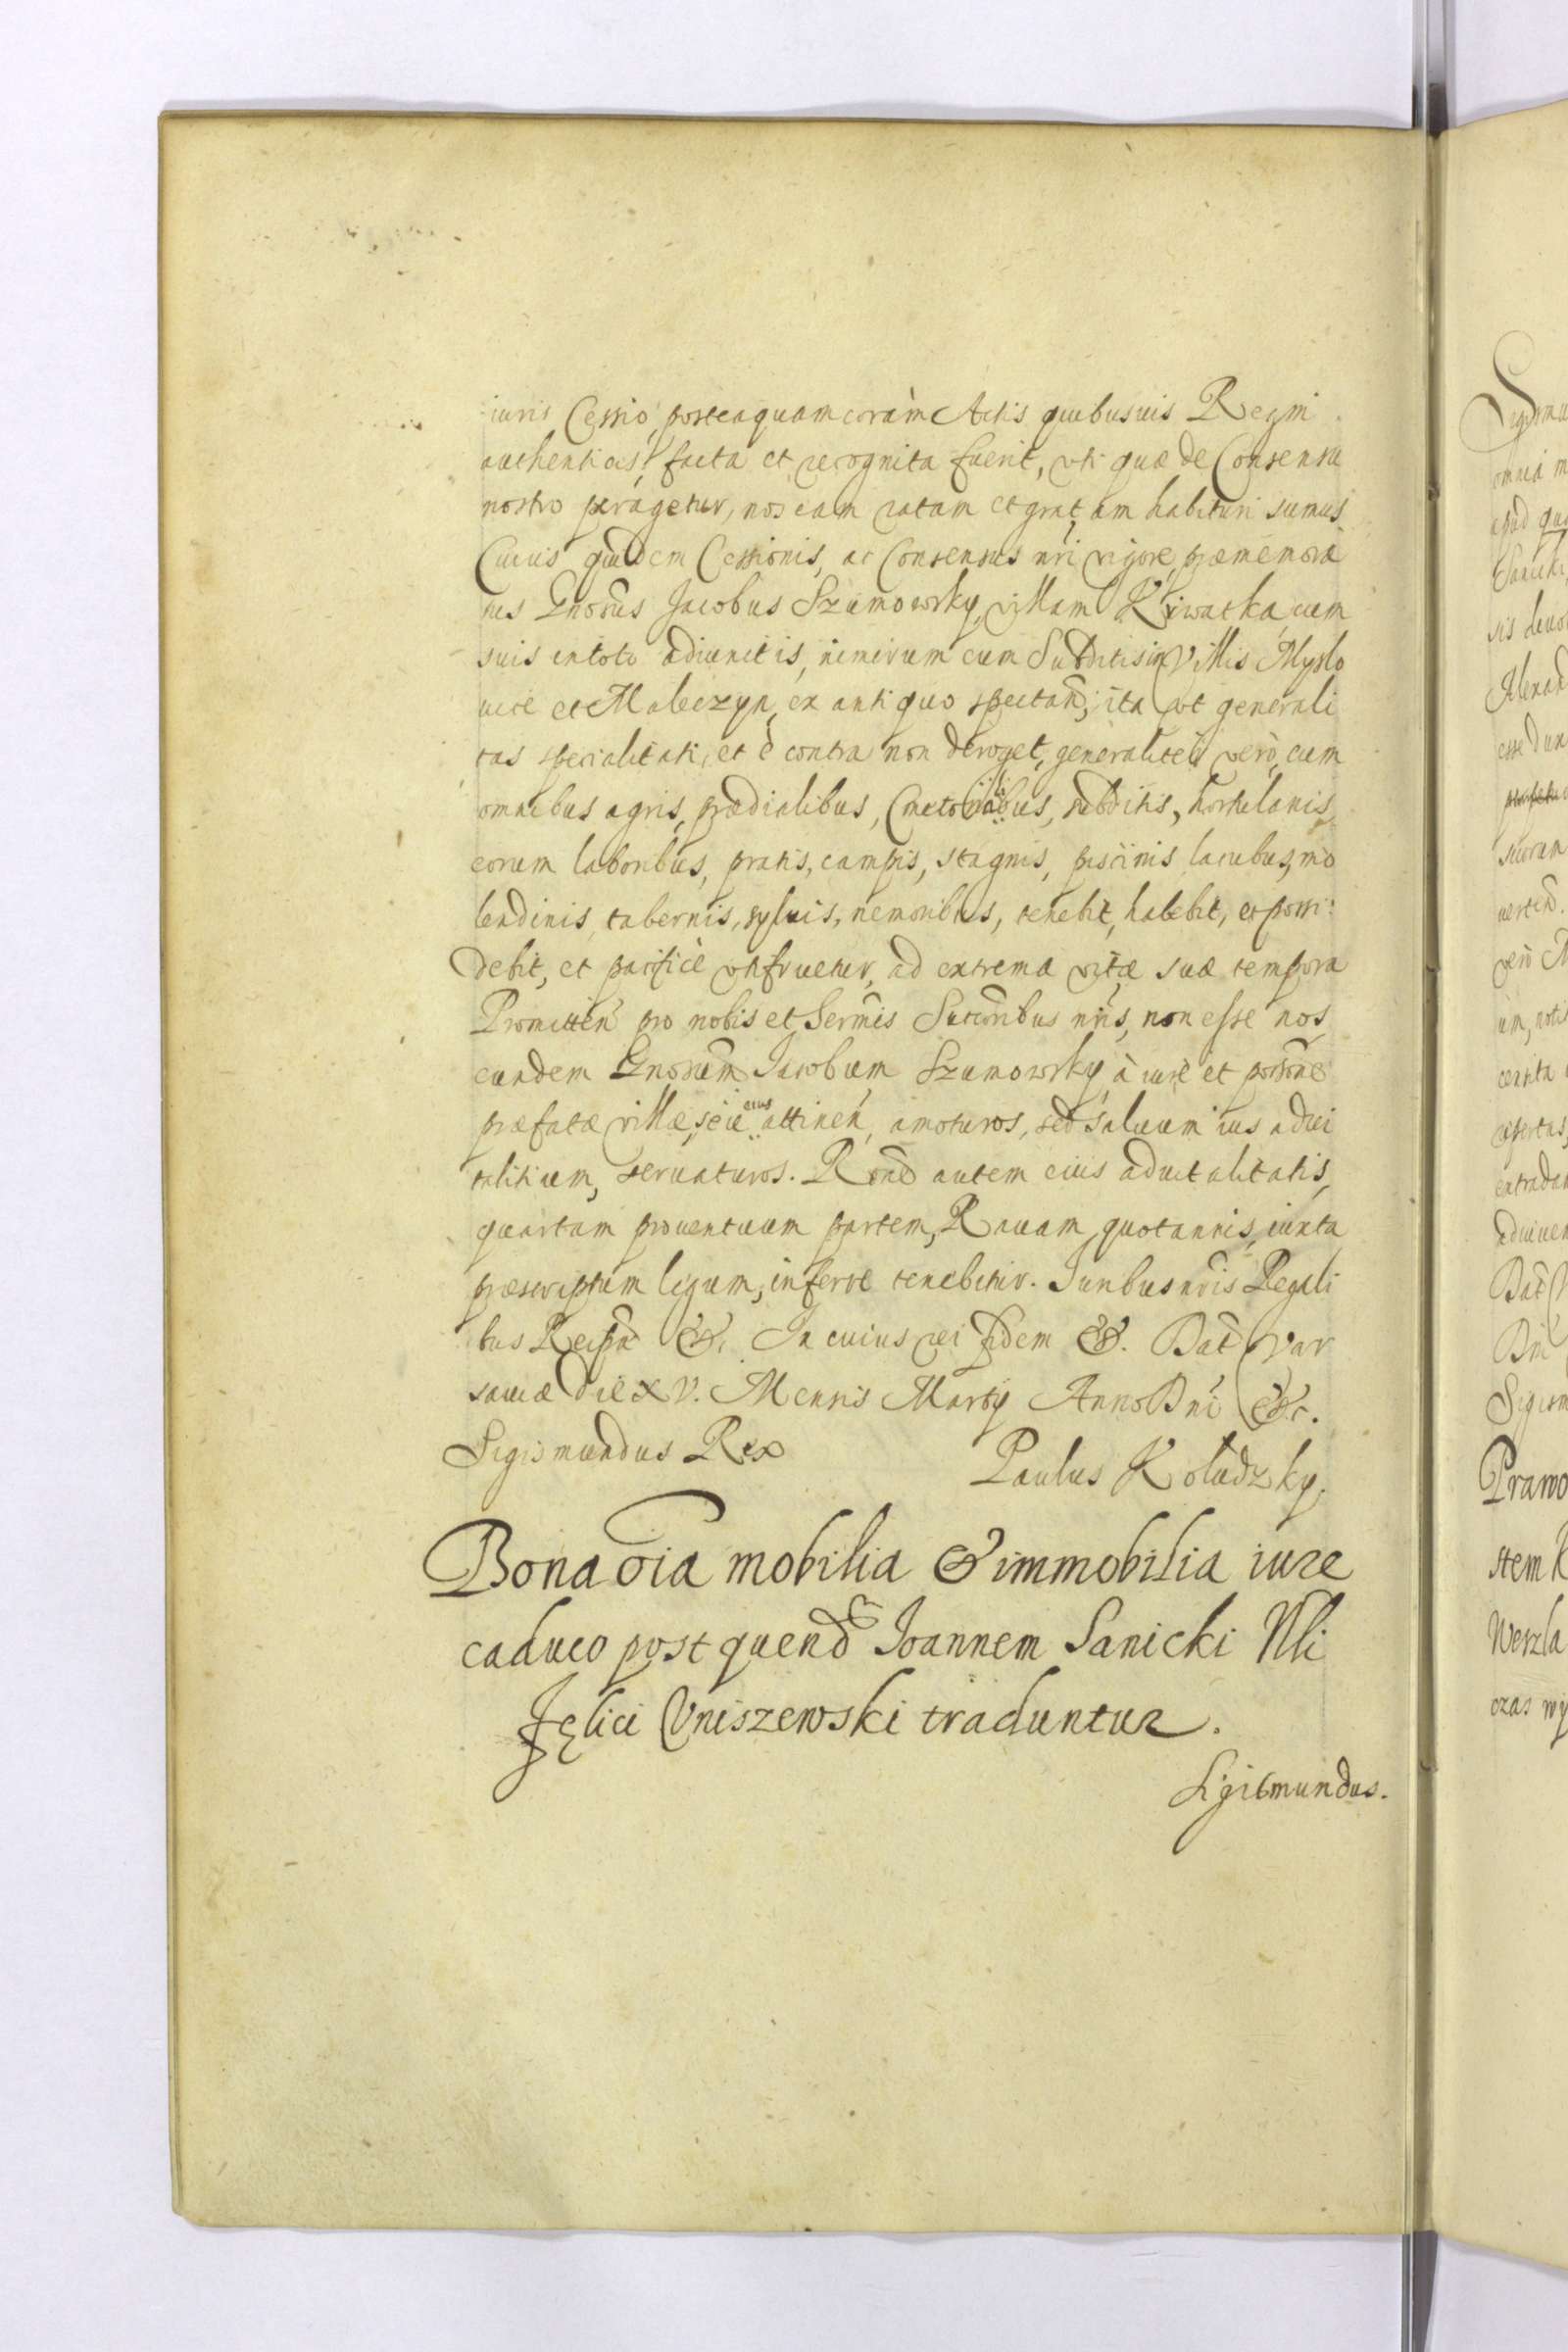 iuris Cessio, posteaquam coram Actis quibusuis Regni
authenticis, facta et recognita fuerit, vti quæ de Consensu
nostro peragetur, nos eam ratam et gratam habituri sumus.
Cuius quidem Cessionis, ac Consensus nri vigore, præmemora
tus Gnosus Jacobus Szumowsky, villam Kiwatka cum
suis in toto adiunctis, nimirum cum Subditis in Villis Myslo
uice et Maleczyn, ex antiquo spectan̄, ita vt generali
tas specialitati, et è contra non deroget, generaliter verò, cum
omnibus agris, prædialibus, Cmetonibus, subditis, hortulanis,
eorum laboribus, pratis, campis, stagnis, piscinis, lacubus, mo
lendinis, tabernis, syluis, nemoribus, tenebit, habebit, et possi:
debit, et pacificè vtifruetur, ad extrema vitæ suæ tempora
Promitten̄ pro nobis et Sermis Succoribus nris, non esse nos
eundem Gnosum Jacobum Szumowsky à iure et possone
præfatæ villæ, seu eius attinen̄, amoturos, sed saluum ius adui
talitium, seruaturos. Rone autem eius aduitalitatis,
quartam prouentuum partem, Rauam, quotannis, iuxta
præscriptum legum, inferre tenebitur. Iuribus nris Regali
bus Reipu &. In cuius rei fidem &. Dat Var
sauiæ die XV. Mensis Martij Anno Dni &c.
Sigismundus Rex
Paulus Koludzky,
Bona oīa mobilia & immobilia iure
caduco post quend Joannem Sanicki Nli
Fęlici Vniszewski traduntur.
Sigismundus.